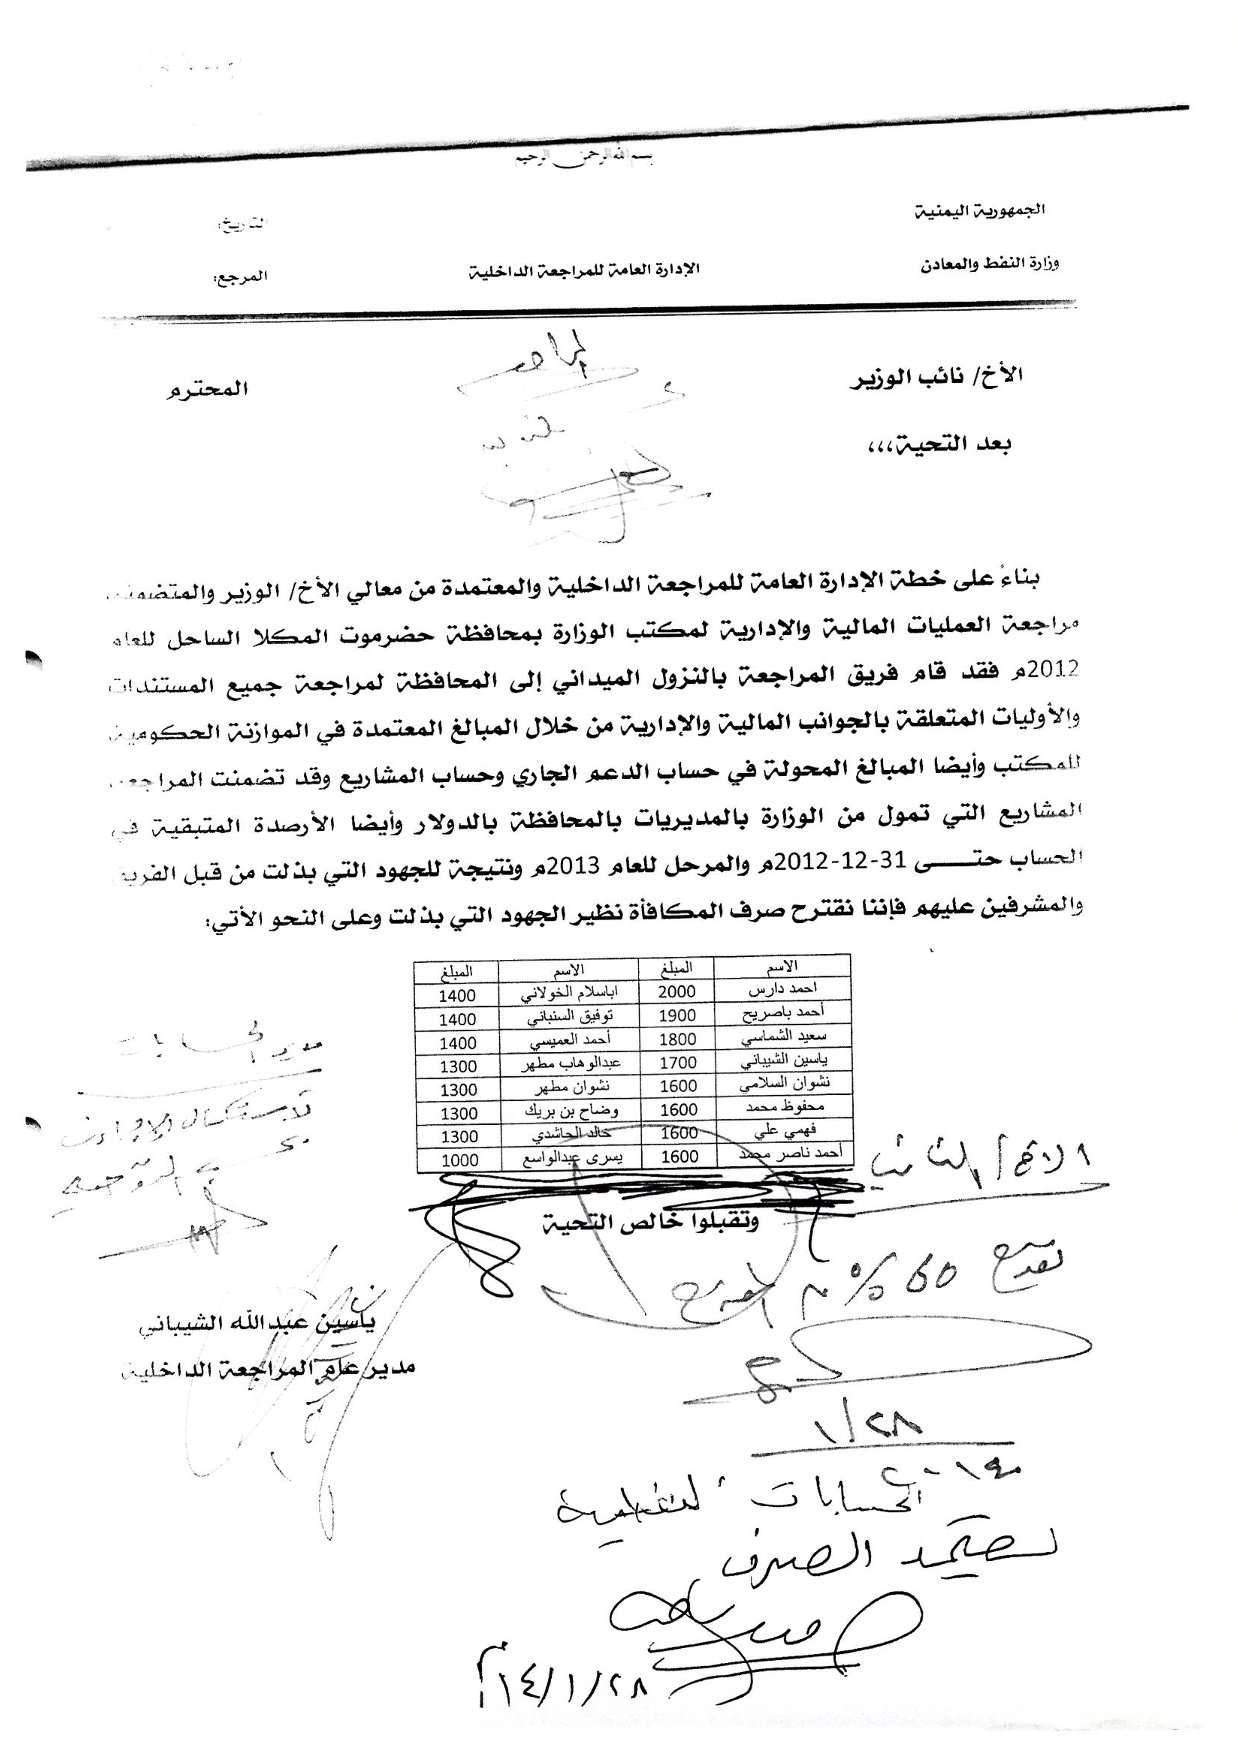 بسم الله الرحمن الرحيم
الجمهورية اليمنية
التاريخ:
وزارة النفط والمعادن
الإدارة العامة للمراجعة الداخلية
المرجع:
الأخ/ نائب الوزير
المحترم
بعد التحية،،،
بناءً على خطة الإدارة العامة للمراجعة الداخلية والمعتمدة من معالي الأخ/ الوزير والمتضمنة
مراجعة العمليات المالية والإدارية لمكتب الوزارة بمحافظة حضرموت المكلا الساحل للعام
2012م فقد قام فريق المراجعة بالنزول الميداني إلى المحافظة لمراجعة جميع المستندات
والأوليات المتعلقة بالجوانب المالية والإدارية من خلال المبالغ المعتمدة في الموازنة الحكومية
للمكتب وأيضا المبالغ المحولة في حساب الدعم الجاري وحساب المشاريع وقد تضمنت المراجعة
المشاريع التي تمول من الوزارة بالمديريات بالمحافظة بالدولار وأيضا الأرصدة المتبقية في
الحساب حتــــى 31-12-2012م والمرحل للعام 2013م ونتيجة للجهود التي بذلت من قبل الفريق
والمشرفين عليهم فإننا نقترح صرف المكافأة نظير الجهود التي بذلت وعلى النحو الأتي:
الاسم المبلغ الاسم المبلغ
احمد دارس 2000 اباسلام الخولاني 1400
أحمد باصريح 1900 توفيق السنباني 1400
سعيد الشماسي 1800 أحمد العميسي 1400
ياسين الشيباني 1700 عبدالوهاب مطهر 1300
نشوان السلامي 1600 نشوان مطهر 1300
محفوظ محمد 1600 وضاح بن بريك 1300
فهمي علي 1600 خالد الحاشدي 1300
أحمد ناصر محمد 1600 يسرى عبدالواسع 1000
مدير الحسابات
لاستكمال الإجراءات
وتقبلوا خالص التحية
60 %
ياسين عبدالله الشيباني
مدير عام المراجعة الداخلية
١/٢٨
٢٠١٤
الحسابات
الصرف
١٤/١/٢٨م